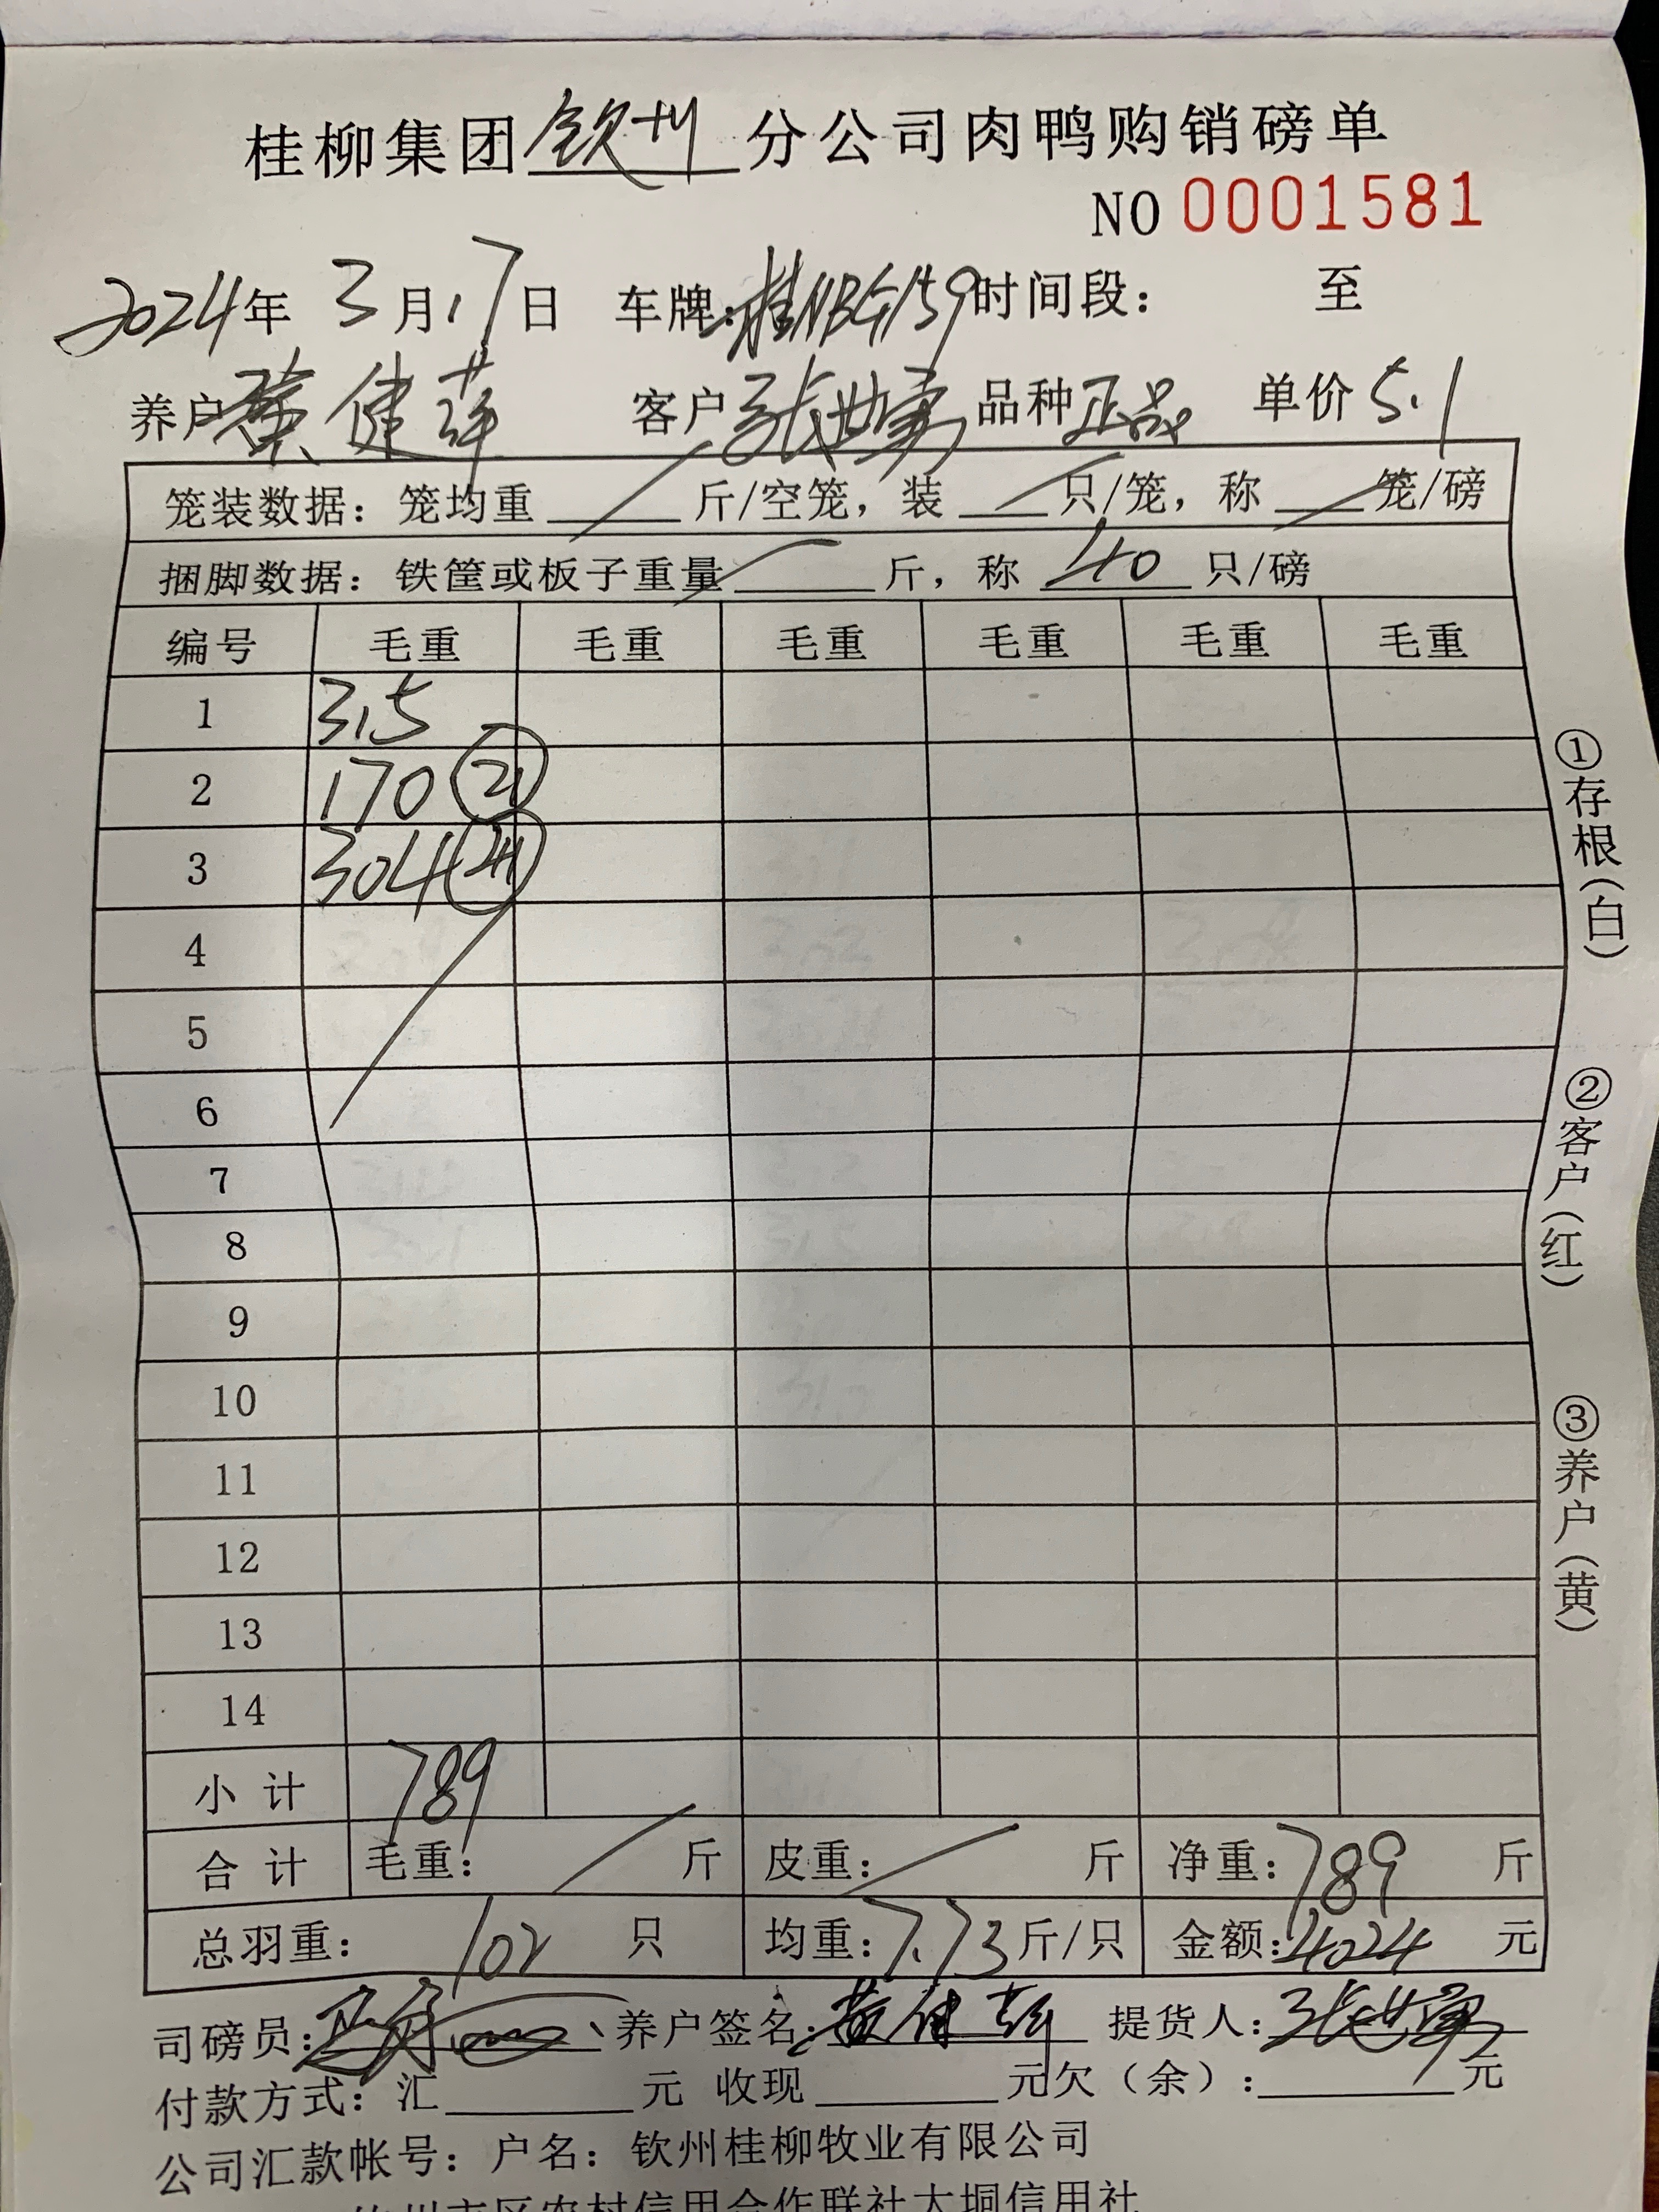 桂柳集团钦州分公司肉鸭购销磅单
NO 0001581
2024年 3月17日 车牌:桂NBG159 时间段: 至
养户 黄健萍 客户 张世寓 品种 正品 单价 5.1
笼装数据: 笼均重 斤/空笼, 装 只/笼, 称 笼/磅
捆脚数据: 铁筐或板子重量 斤, 称 40 只/磅
编号 毛重 毛重 毛重 毛重 毛重 毛重
1 315
2 170 (21)
3 304 (41)
4
5
6
7
8
9
10
11
12
13
14
小计 789
合计 毛重: 斤 皮重: 斤 净重: 789 斤
总羽重: 102 只 均重: 7.73 斤/只 金额: 4024 元
司磅员: 养户签名: 黄健萍 提货人: 张世寓
付款方式: 汇 元 收现 元欠(余): 元
公司汇款帐号: 户名: 钦州桂柳牧业有限公司
钦州市区农村信用合作联社大垌信用社
①存根(白)
②客户(红)
③养户(黄)